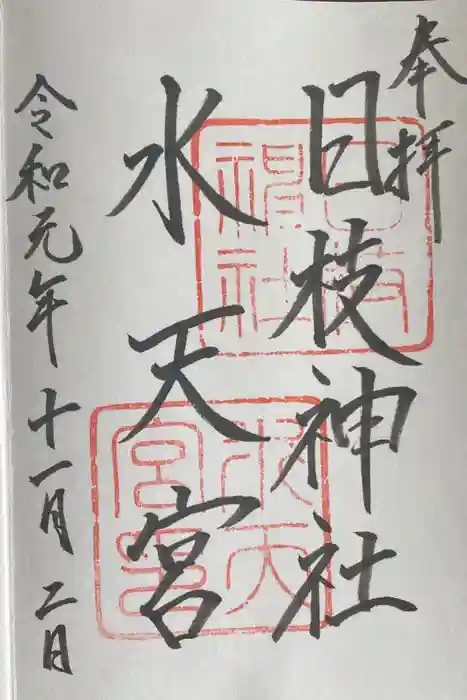 奉拝
日枝神社
水天宮
令和元年十一月二日
日枝神社
水天宮印